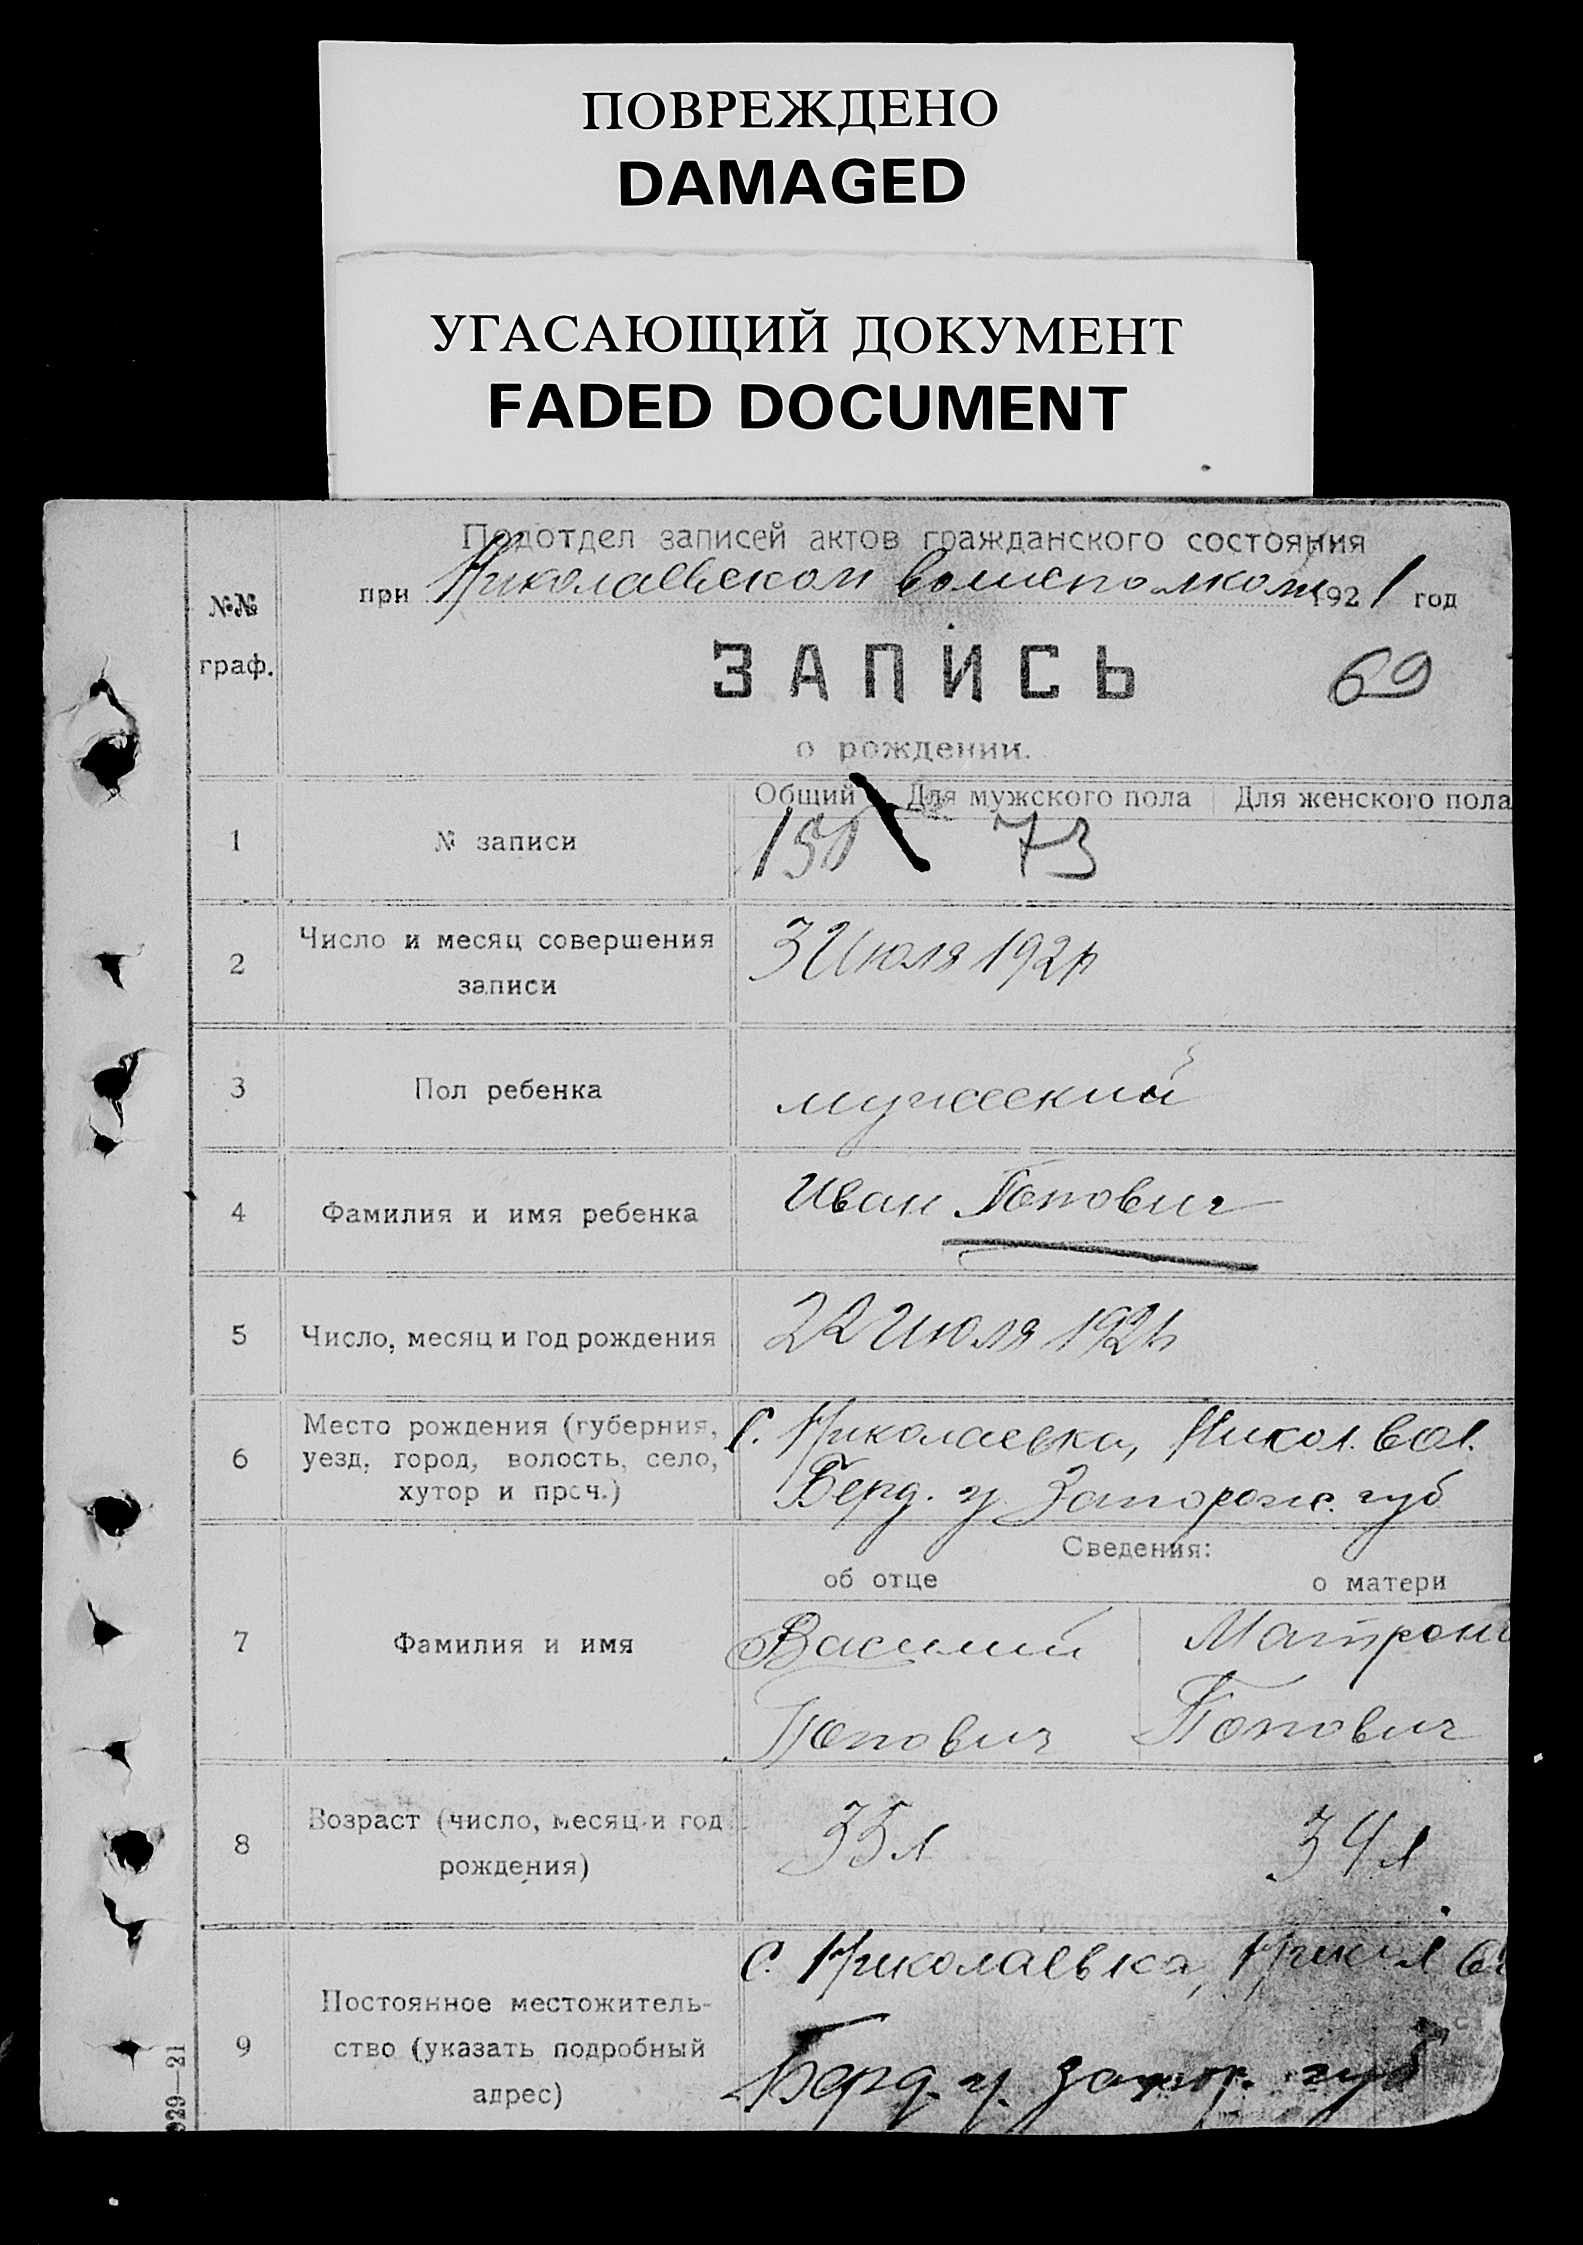 ПОВРЕЖДЕНО
DAMAGED
УГАСАЮЩИЙ ДОКУМЕНТ
FADED DOCUMENT
Подотдел записей актов гражданского состояния
при Николаевском волисполком 1921 год
№№ граф.
ЗАПИСЬ
69
о рождении.
Общий Для мужского пола Для женского пола
1 № записи 150 73
2 Число и месяц совершения
записи
3 Июля 1921
3 Пол ребенка мужеский
4 Фамилия и имя ребенка Иван Попович
5 Число, месяц и год рождения 22 Июля 1921
6 Место рождения (губерния,
уезд, город, волость, село,
хутор и проч.)
С. Николаевка, Никол. вол.
Берд. у. Запорож. губ
Сведения:
об отце о матери
7 Фамилия и имя
Василий Матрон
Попович Попович
8 Возраст (число, месяц и год
рождения)
35 л 34 л
9 Постоянное местожитель-
ство (указать подробный
адрес)
С. Николаевка, Никол
Берд. у. Запор. губ
929—21